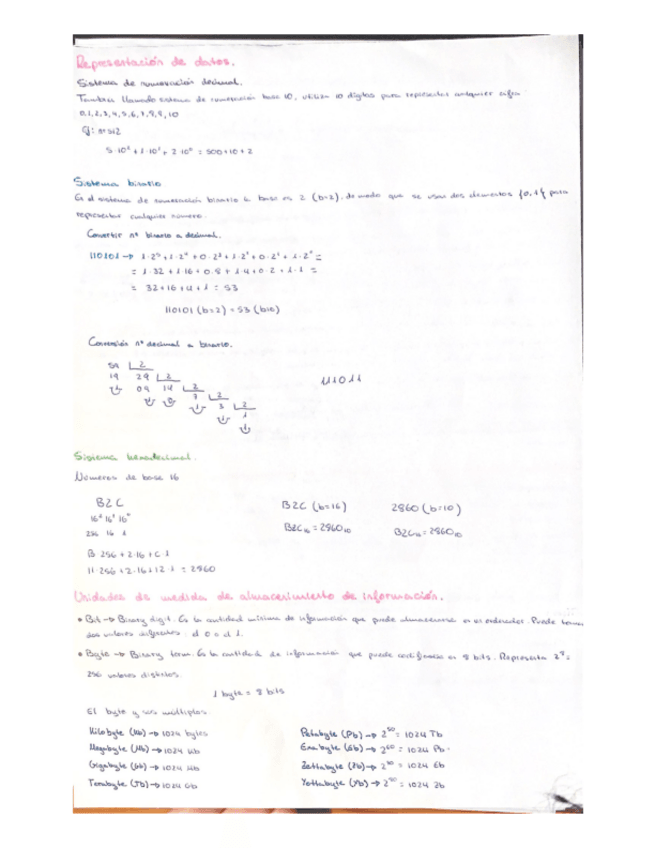 Representación de datos.
Sistema de numeración decimal.
También llamado sistema de numeración base 10, utiliza 10 dígitos para representar cualquier cifra
0,1,2,3,4,5,6,7,8,9,10
Ej: nº 512
5·10² + 1·10¹ + 2·10⁰ = 500+10+2
Sistema binario
Es el sistema de numeración binario la base es 2 (b=2), de modo que se usan dos elementos {0,1} para
representar cualquier número.
Convertir nº binario a decimal.
110101 → 1·2⁵ + 1·2⁴ + 0·2³ + 1·2² + 0·2¹ + 1·2⁰ =
= 1·32 + 1·16 + 0·8 + 1·4 + 0·2 + 1·1 =
= 32+16+4+1 = 53
110101 (b=2) = 53 (b10)
Conversión nº decimal a binario.
59 2
19 29 2
1 09 14 2
1 0 7 2
1 3 2
1 1
111011
Sistema hexadecimal.
Números de base 16
B2C
16² 16¹ 16⁰
256 16 1
B2C (b=16)
B2C₁₆ = 2860₁₀
2860 (b=10)
B2C₁₆ = 2860₁₀
B·256 + 2·16 + C·1
11·256 + 2·16 + 12·1 = 2860
Unidades de medida de almacenimiento de información.
• Bit → Binary digit. Es la cantidad mínima de información que puede almacenarse en un ordenador. Puede tomar
dos valores diferentes: el 0 o el 1.
• Byte → Binary term. Es la cantidad de información que puede codificarse en 8 bits. Representa 2⁸=
256 valores distintos.
1 byte = 8 bits
El byte y sus múltiplos
Kilobyte (Kb) → 1024 bytes
Megabyte (Mb) → 1024 Kb
Gigabyte (Gb) → 1024 Mb
Terabyte (Tb) → 1024 Gb
Petabyte (Pb) → 2⁵⁰ = 1024 Tb
Exabyte (Eb) → 2⁶⁰ = 1024 Pb
Zettabyte (Zb) → = 1024 Eb
Yottabyte (Yb) → = 1024 Zb